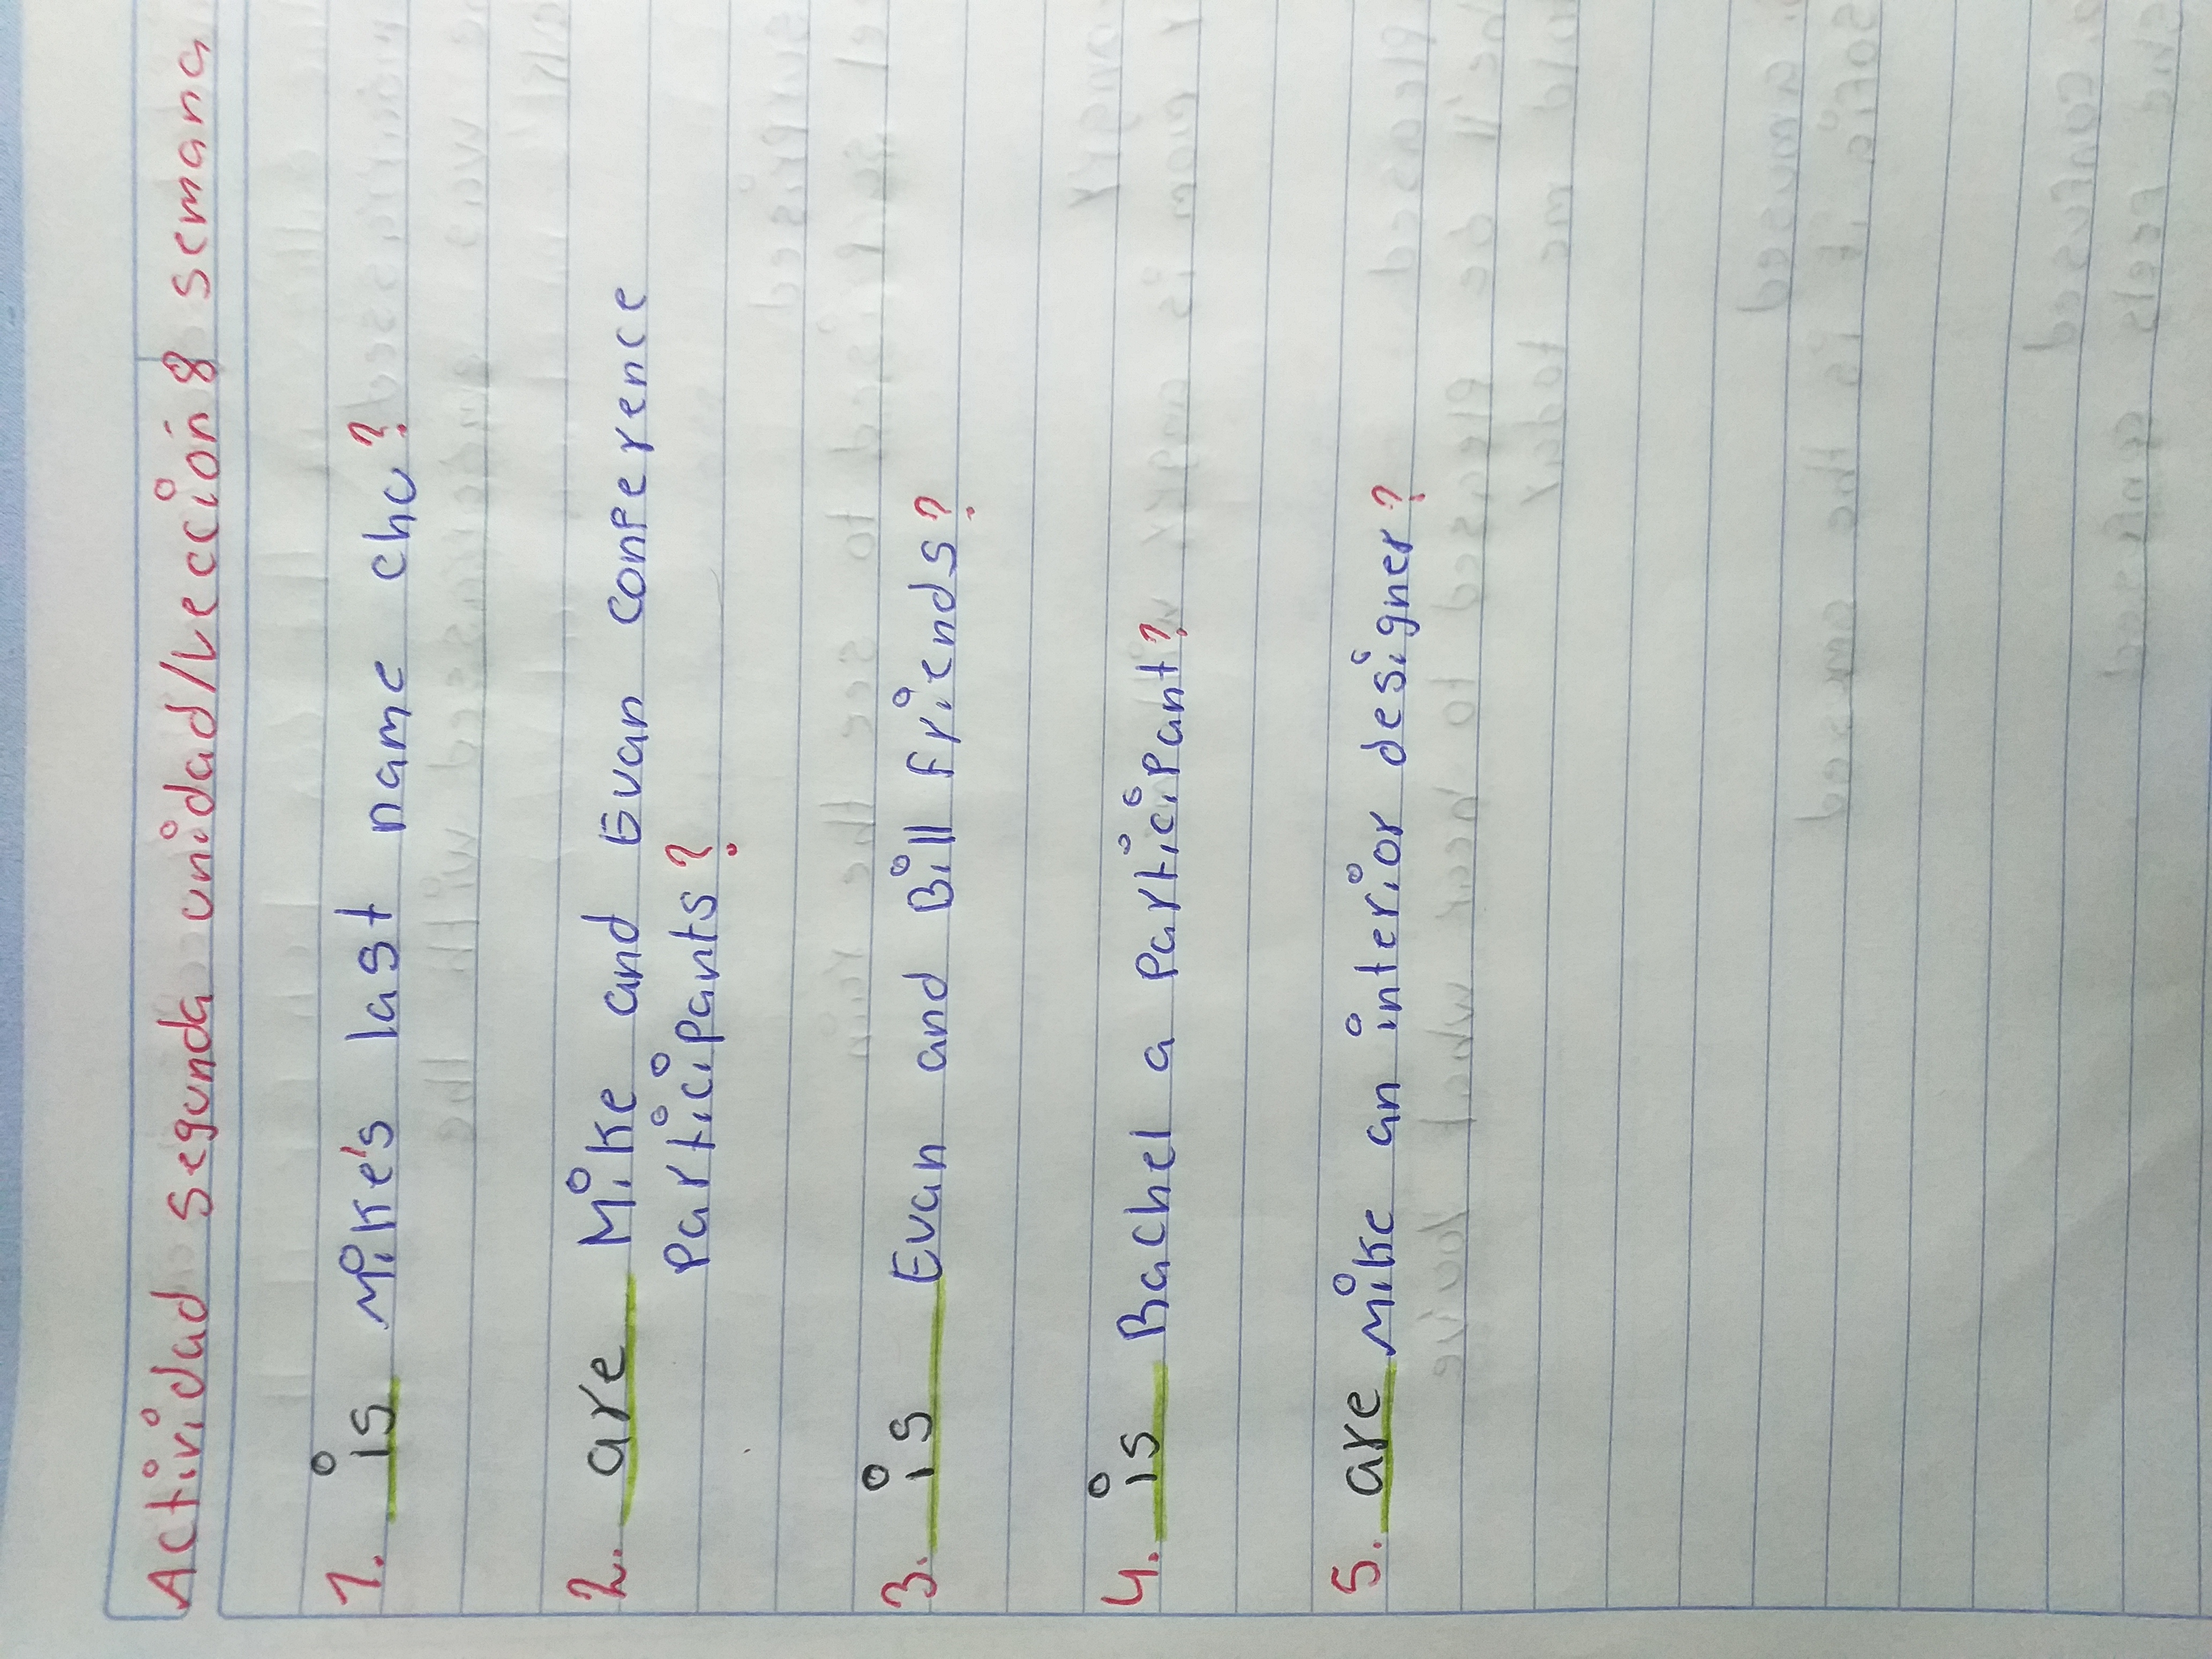 Actividad segunda unidad/Lección 8 semana
1. is Mike's last name cho?
2. are Mike and Evan conference
Participants?
3. is Evan and Bill friends?
4. is Rachel a Participant?
5. are Mike an interior designer?